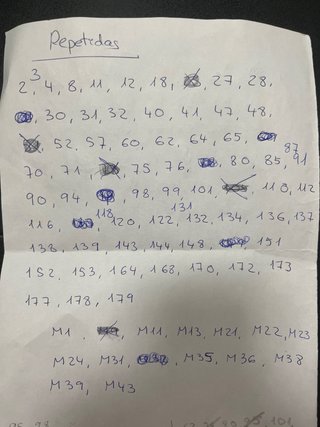 Repetidas
2, 3, 4, 8, 11, 12, 18, 27, 28,
30, 31, 32, 40, 41, 47, 48,
52, 57, 60, 62, 64, 65,
70, 71, 75, 76, 80, 85, 87, 91
90, 94, 98, 99, 101, 110, 112
116, 118, 120, 122, 131, 132, 134, 136, 137
138, 139, 143, 144, 148, 151
152, 153, 164, 168, 170, 172, 173
177, 178, 179
M1, M11, M13, M21, M22, M23
M24, M31, M35, M36, M38
M39, M43